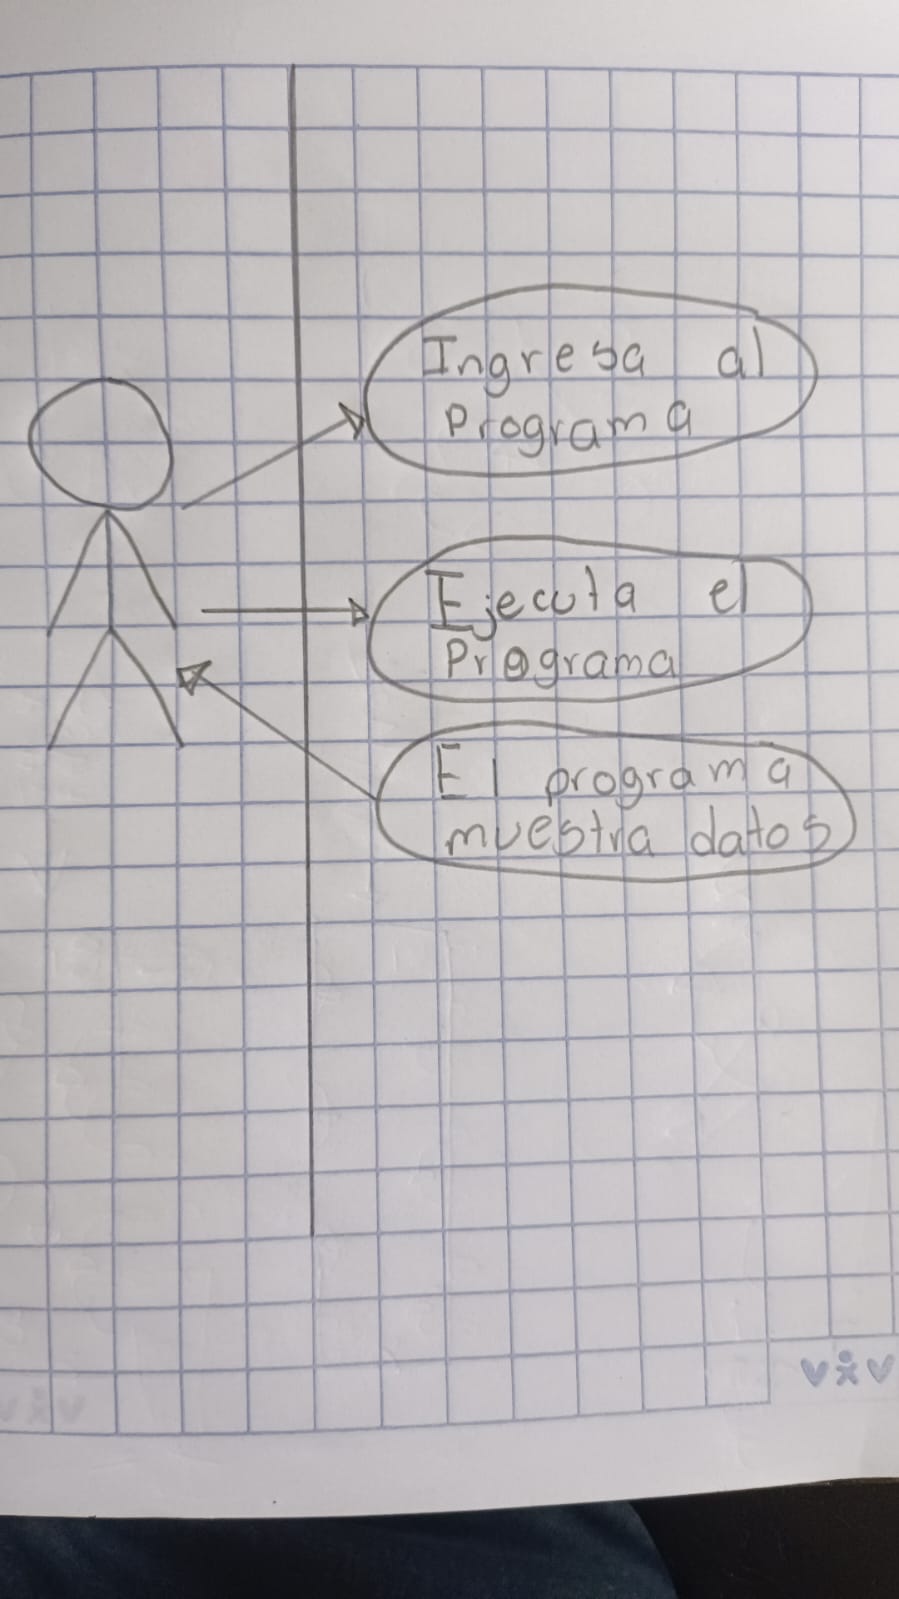 Ingresa al
Programa
Ejecuta el
Programa
El programa
muestra datos